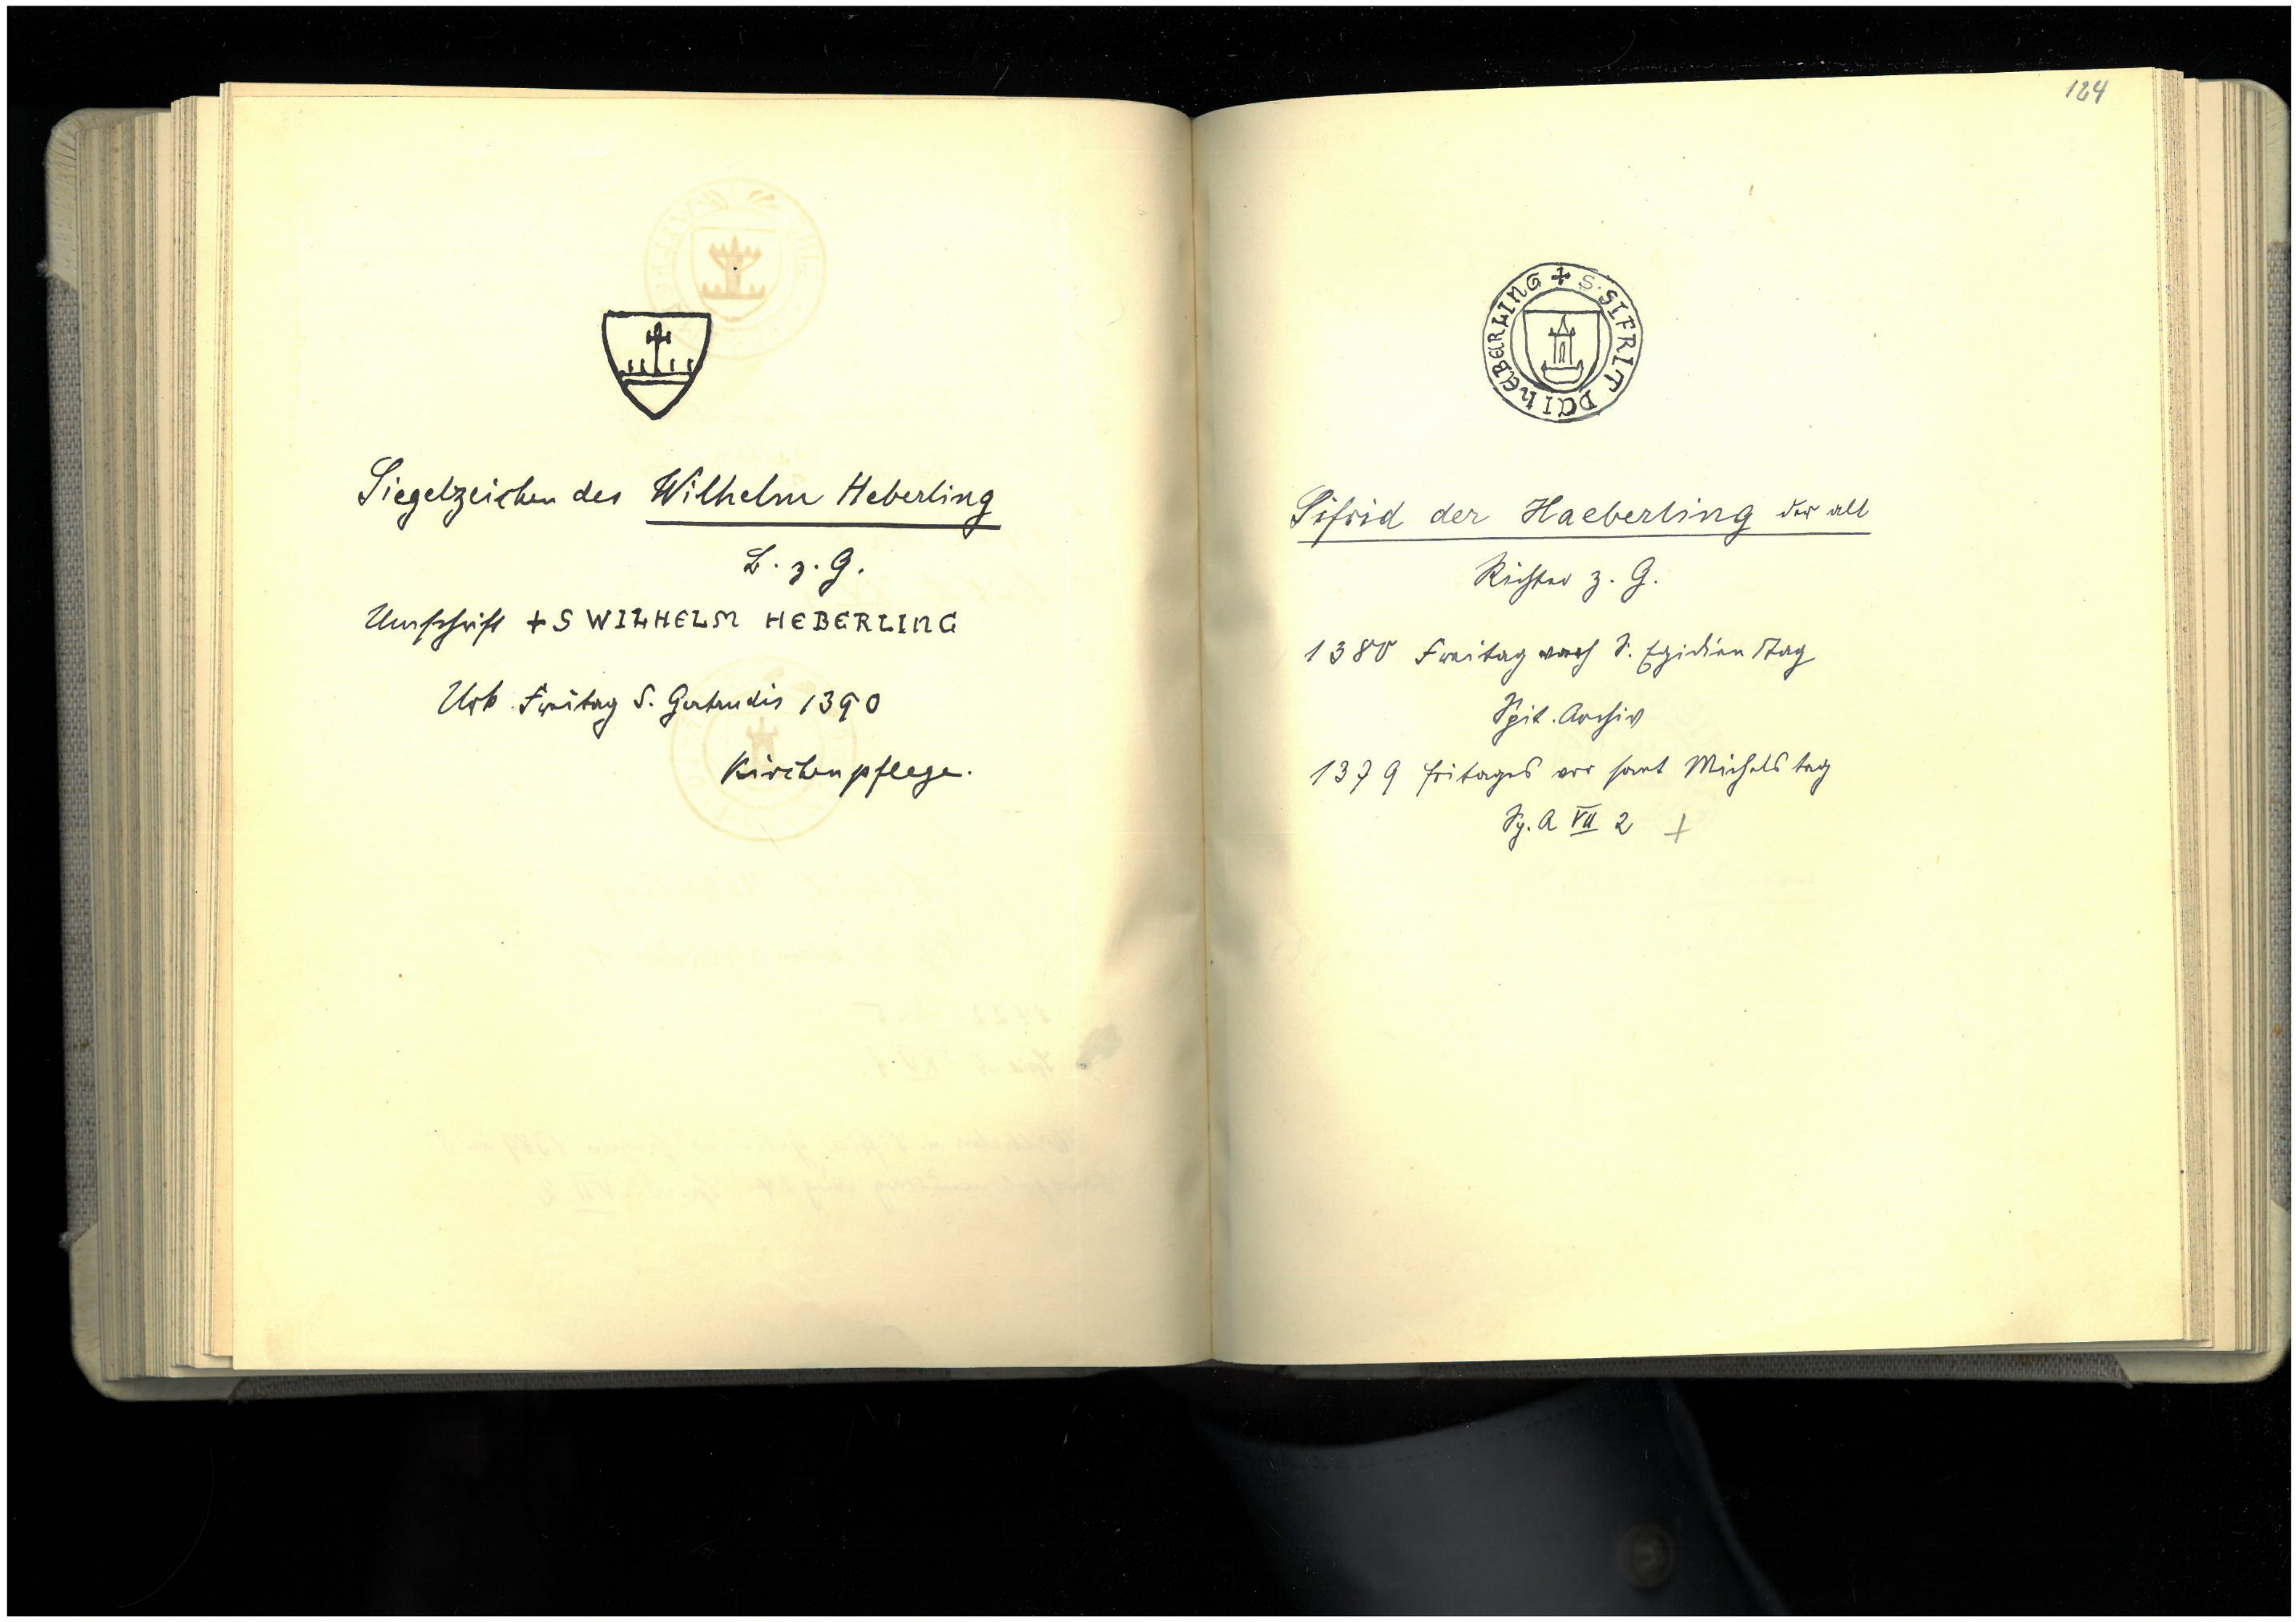 Siegelzeichen des Wilhelm Heberling
B. z. G.
Umschrift + S WILHELM HEBERLING
Urk. Freitag S. Gertrudis 1390
Kirchenpflege.
124
+ S. SIFRIT D HEBERLING
Sifrid der Haeberling der alt
Richter z. G.
1380 Freitag nach S. Egidien Tag
Spit. Archiv
1379 fritages vor sant Michels tag
Sp. A VII 2 +